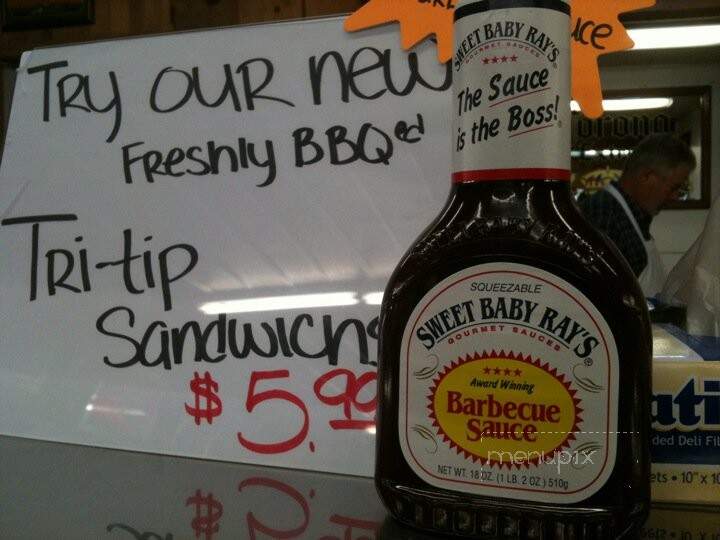 Try our new
Freshly BBQed
Tri-tip
Sandwichs
$5.99
SWEET BABY RAY'S
GOURMET SAUCES
The Sauce
is the Boss!
SQUEEZABLE
SWEET BABY RAY'S®
GOURMET SAUCES
Award Winning
Barbecue
Sauce
NET WT. 18 OZ. (1 LB. 2 OZ.) 510g
menupix